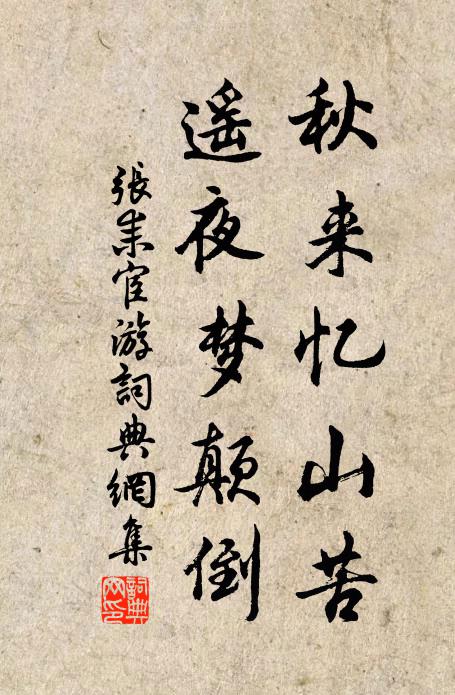 秋来忆山苦
遥夜梦颠倒
張耒宦游詞典網集
詞典网印